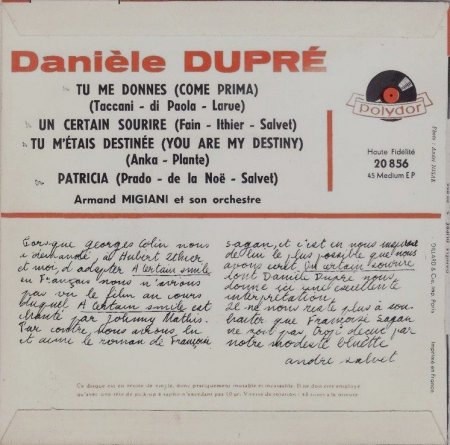 Danièle DUPRÉ
TU ME DONNES (COME PRIMA)
(Taccani - di Paola - Larue)
UN CERTAIN SOURIRE (Fain - Ithier - Salvet)
TU M'ÉTAIS DESTINÉE (YOU ARE MY DESTINY)
(Anka - Plante)
PATRICIA (Prado - de la Noë - Salvet)
Armand MIGIANI et son orchestre
polydor
Haute Fidélité
20 856
45 Medium E P
Lorsque georges Colin nous
a demandé, à Hubert Ithier
et moi, d'adapter A certain smile
en Français nous n'avions
pas vu le film au cours
duquel A certain smile est
chanté par Johnny Mathis.
Par contre, nous avions lu
et aimé le roman de Françoise
Sagan, et c'est en nous
de lui le plus possible que nous
avons écrit Un certain sourire
dont Danièle Dupré nous
donne ici une excellente
interprétation.
Il ne nous reste plus à sou-
haiter que Françoise Sagan
ne soit pas trop déçue par
notre modeste bluette
andré salvet
Ce disque est en résine de vinyle, donc pratiquement inusable et incassable. Il ne doit être employé
qu'avec une tête de pick-up à saphir n'excédant pas 10 gr. Vitesse de rotation : 45 tours à la minute
Imprimé en France